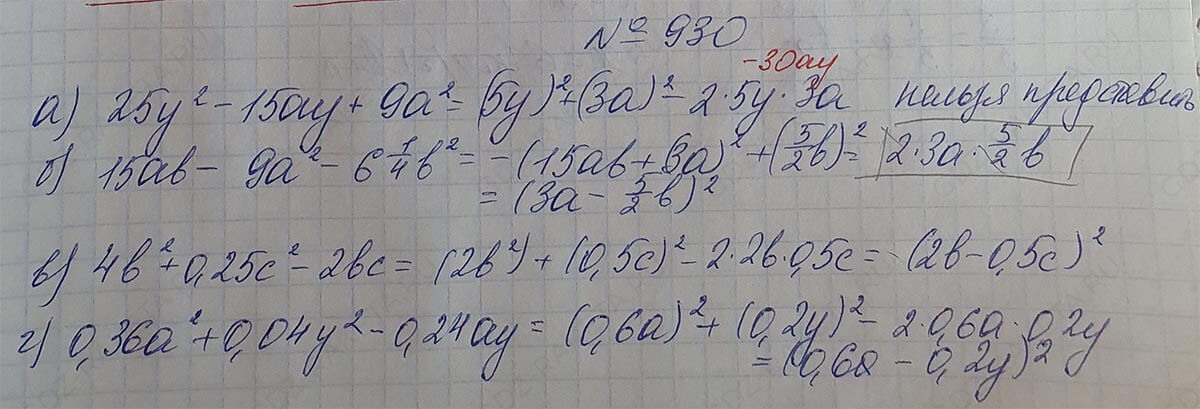 № 930
-30ay
а) 25y² - 15ay + 9a² = (5y)² + (3a)² - 2·5y·3a нельзя представить
б) 15ab - 9a² - 6 1/4 b² = -(15ab + 3a)² + (5/2 b)² = 2·3a·5/2 b
= (3a - 5/2 b)²
в) 4b² + 0,25c² - 2bc = (2b²) + (0,5c)² - 2·2b·0,5c = (2b - 0,5c)²
г) 0,36a² + 0,04y² - 0,24ay = (0,6a)² + (0,2y)² - 2·0,6a·0,2y
= (0,6a - 0,2y)²